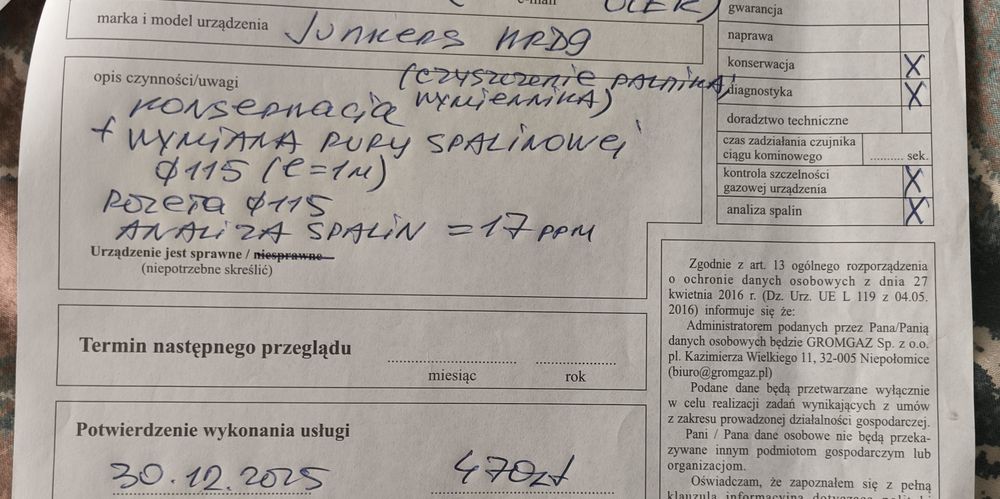 marka i model urządzenia JUNKERS WRD9
opis czynności/uwagi (CZYSZCZENIE PALNIKA,
KONSERWACJA WYMIENNIKA)
+ WYMIANA RURY SPALINOWEJ
Ø115 (l=1M)
ROZETA Ø115
ANALIZA SPALIN = 17 PPM
Urządzenie jest sprawne / niesprawne
(niepotrzebne skreślić)
gwarancja
naprawa
konserwacja X
diagnostyka X
doradztwo techniczne
czas zadziałania czujnika
ciągu kominowego .......... sek.
kontrola szczelności
gazowej urządzenia X
analiza spalin X
Termin następnego przeglądu
miesiąc rok
Potwierdzenie wykonania usługi
30.12.2025 470zł
Zgodnie z art. 13 ogólnego rozporządzenia
o ochronie danych osobowych z dnia 27
kwietnia 2016 r. (Dz. Urz. UE L 119 z 04.05.
2016) informuje się że:
Administratorem podanych przez Pana/Panią
danych osobowych będzie GROMGAZ Sp. z o.o.
pl. Kazimierza Wielkiego 11, 32-005 Niepołomice
(biuro@gromgaz.pl)
Podane dane będą przetwarzane wyłącznie
w celu realizacji zadań wynikających z umów
z zakresu prowadzonej działalności gospodarczej.
Pani / Pana dane osobowe nie będą przeka-
zywane innym podmiotom gospodarczym lub
organizacjom.
Oświadczam, że zapoznałem się z pełną
klauzulą informacyjną